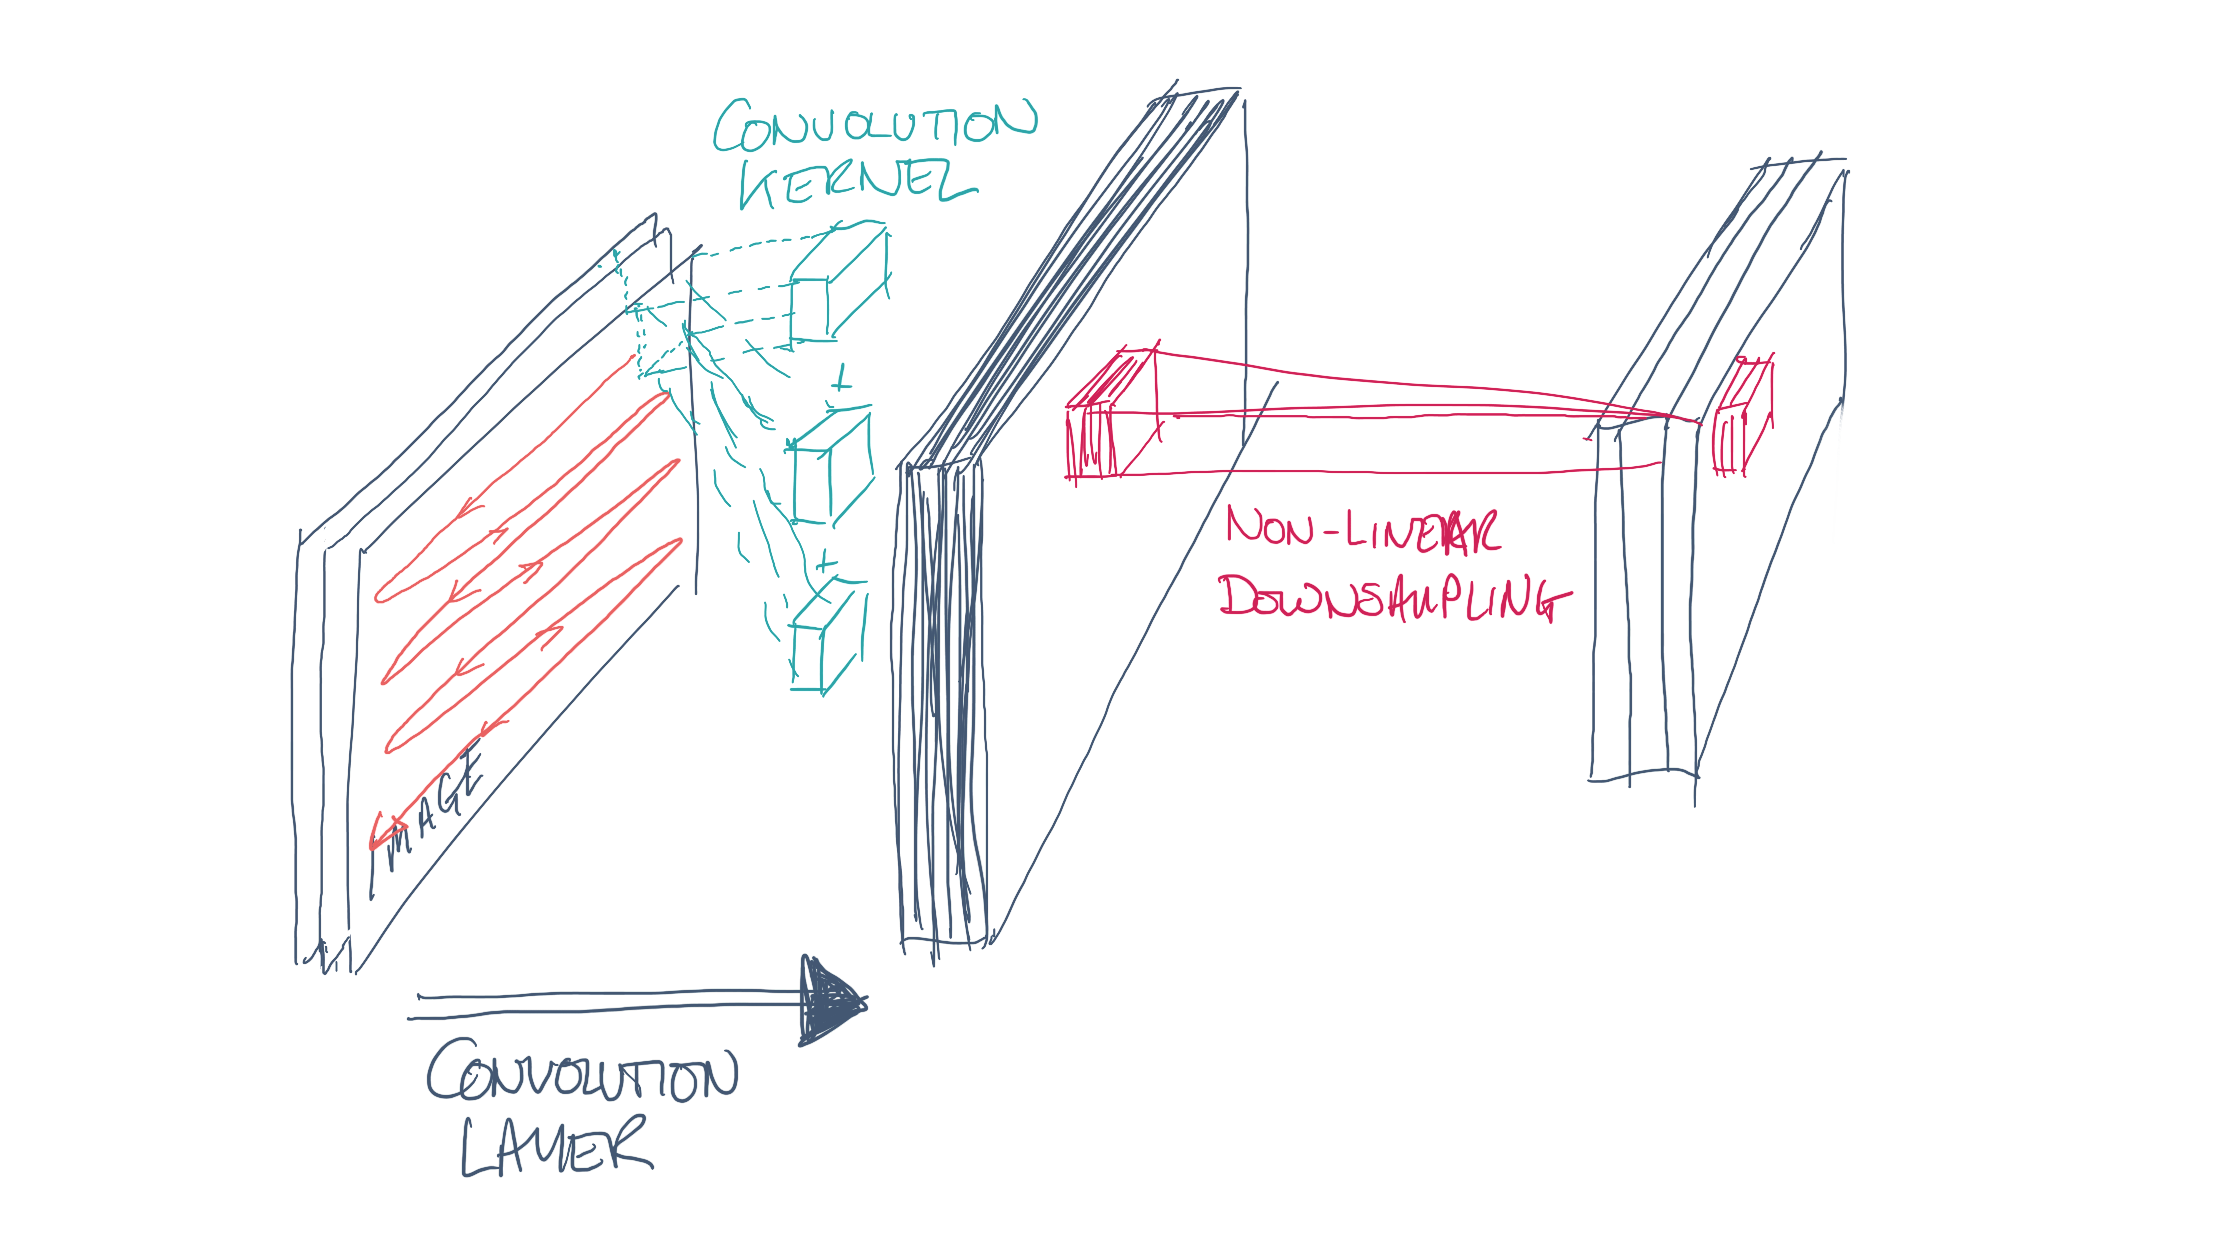 CONVOLUTION
KERNEL
+
+
NON-LINEAR
DOWNSAMPLING
IMAGE
CONVOLUTION
LAYER